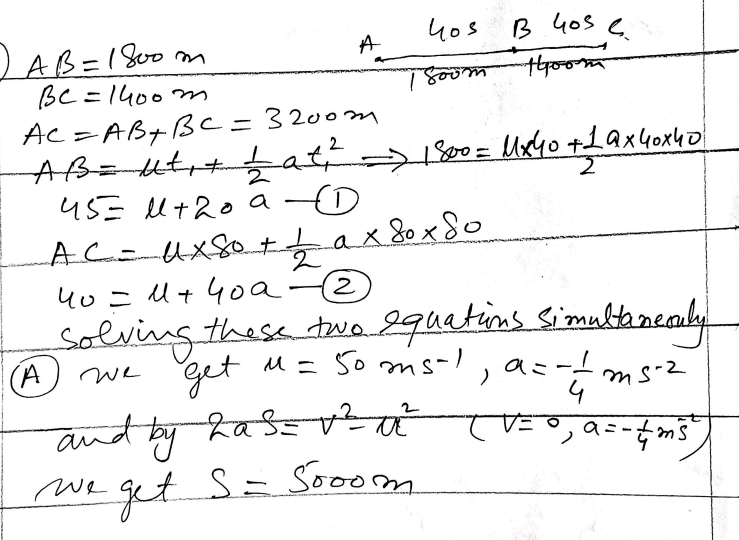 40s B 40s C
A
1800m 1400m
AB = 1800 m
BC = 1400 m
AC = AB + BC = 3200m
AB = ut₁ + 1/2 at₁² ⇒ 1800 = U×40 + 1/2 a×40×40
45 = u + 20 a —①
AC = u×80 + 1/2 a × 80×80
40 = u + 40a —②
solving these two equations simultaneously
Ⓐ we get u = 50 ms-1, a = -1/4 ms-2
and by 2aS = v² - u² (V=0, a = -1/4 ms-2)
we get S = 5000m